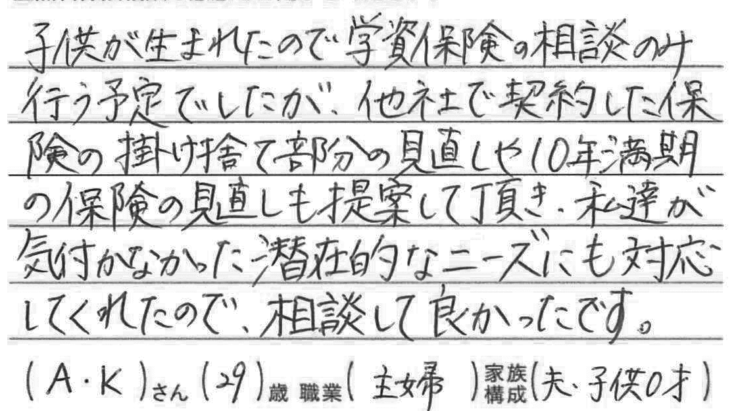 子供が生まれたので学資保険の相談のみ
行う予定でしたが、他社で契約した保
険の掛け捨て部分の見直しや10年満期
の保険の見直しも提案して頂き、私達が
気付かなかった潜在的なニーズにも対応
してくれたので、相談して良かったです。
(A・K)さん(29)歳 職業(主婦)家族構成(夫・子供0才)